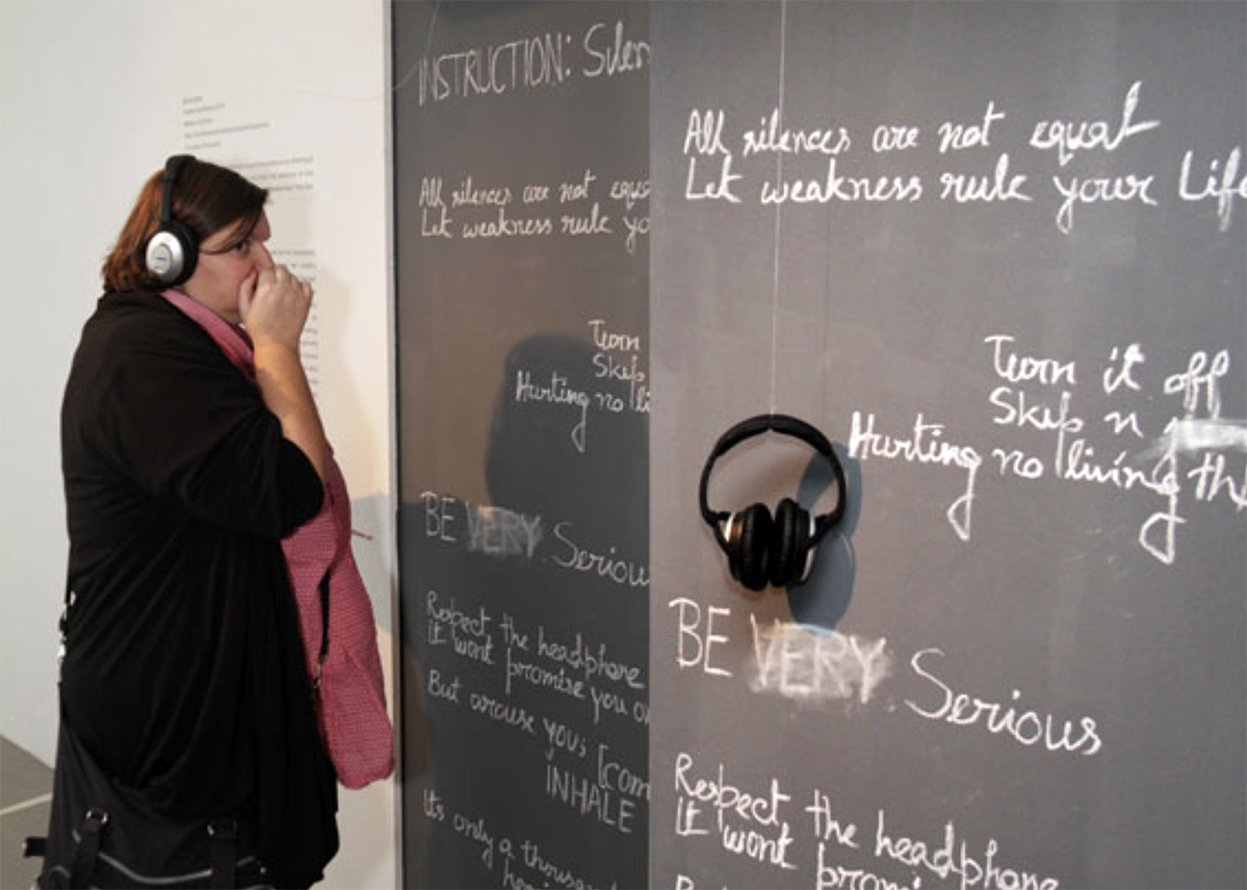 INSTRUCTION: Silen
All silences are not equa
Let weakness rule yo
Turn
Skip
Hurting no li
BE VERY Seriou
Respect, the headphone
It wont promise you o
But arouse you; [com
INHALE
Its only a thousan
All silences are not equal
Let weakness rule your Life
Turn it off
Skip n
Hurting no living th
BE VERY Serious
Respect, the headphone
It wont promi